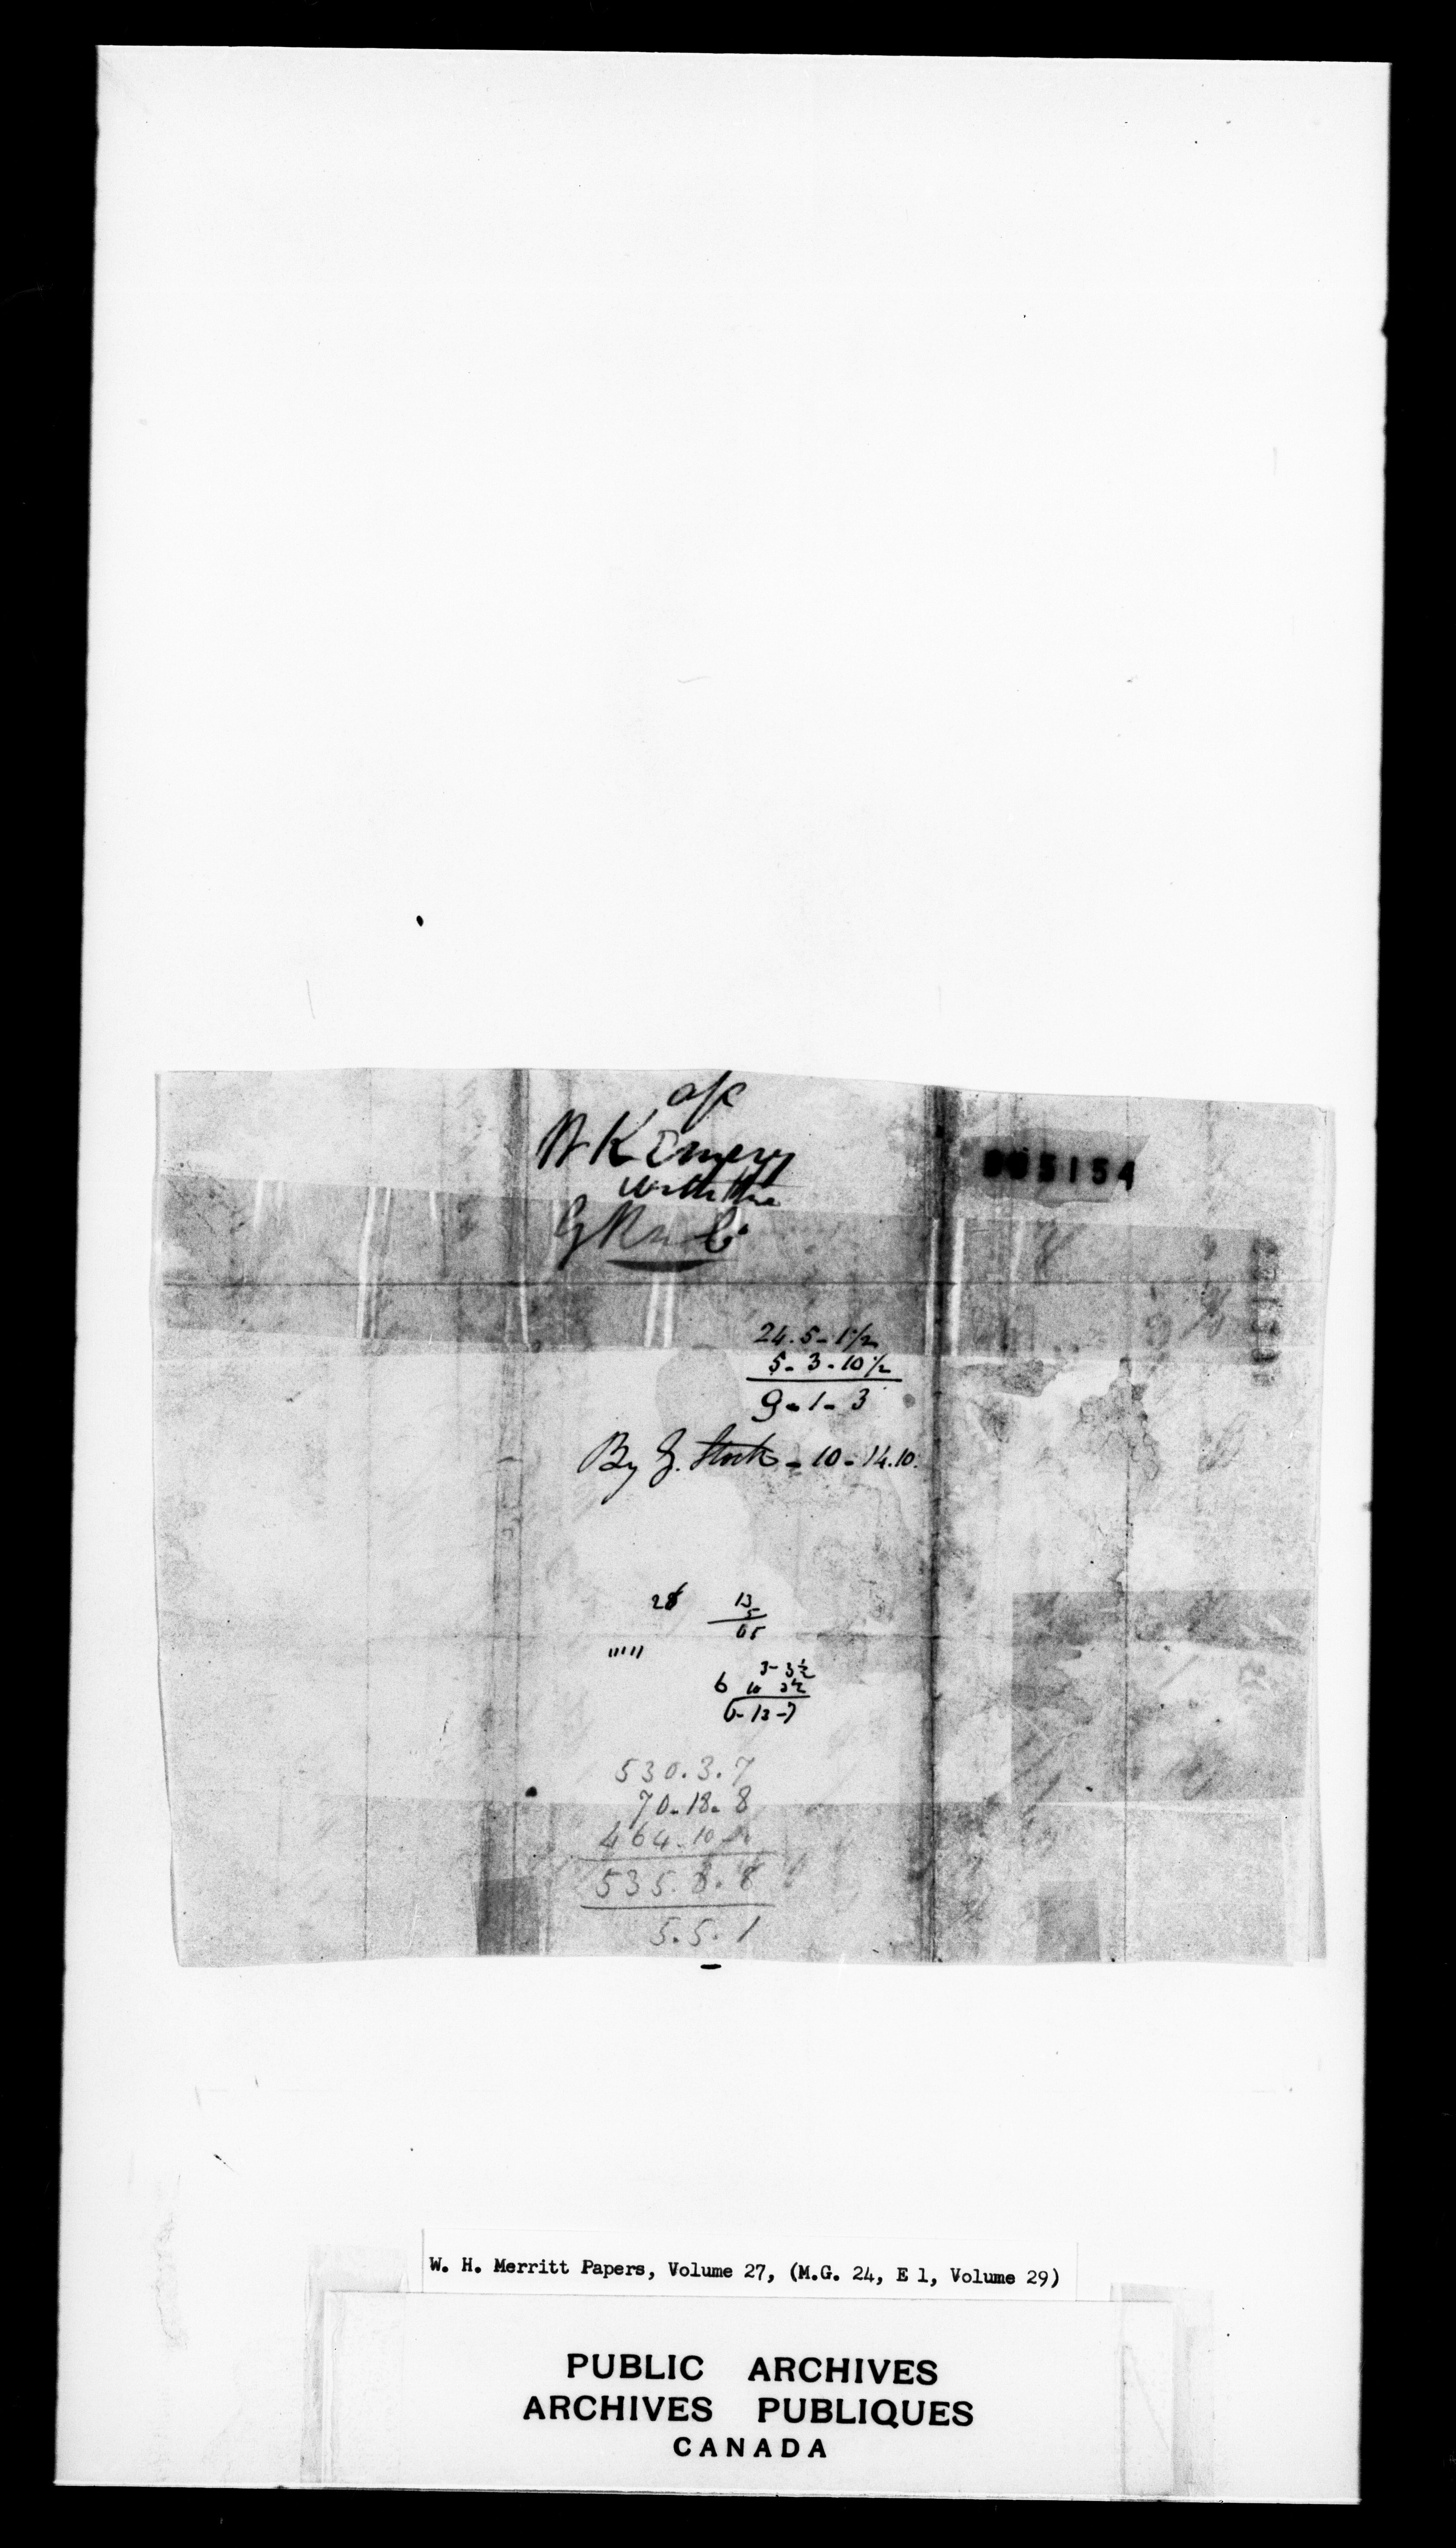 a/c
W K Emery
with the
G R Co
005154
24.5-1 1/2
5-3-10 1/2
9-1-3
By G. Stock - 10-14.10.
28 13
5
65
"""
3-3 1/2
6 10 3 1/2
6-13-7
530.3.7
70.18.8
464.10-
535.8.8
5.5.1
W. H. Merritt Papers, Volume 27, (M.G. 24, E 1, Volume 29)
PUBLIC ARCHIVES
ARCHIVES PUBLIQUES
CANADA